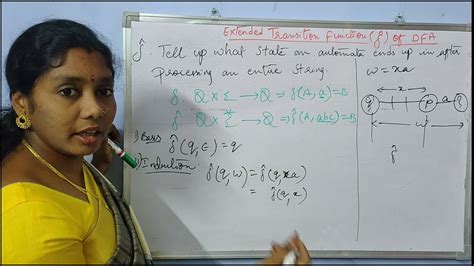 Extended Transition Function (δ̂) of DFA
δ̂ : Tell up what state an automate ends up in after
processing an entire string.
w = xa
δ : Q × Σ → Q ⇒ δ(A, a) = B
δ̂ : Q × Σ* → Q ⇒ δ̂(A, abc) = B
i) Basis δ̂(q, ε) = q
ii) Induction: δ̂(q, w) = δ̂(q, xa)
= δ̂(q, x)
x
q p a r
w
δ̂